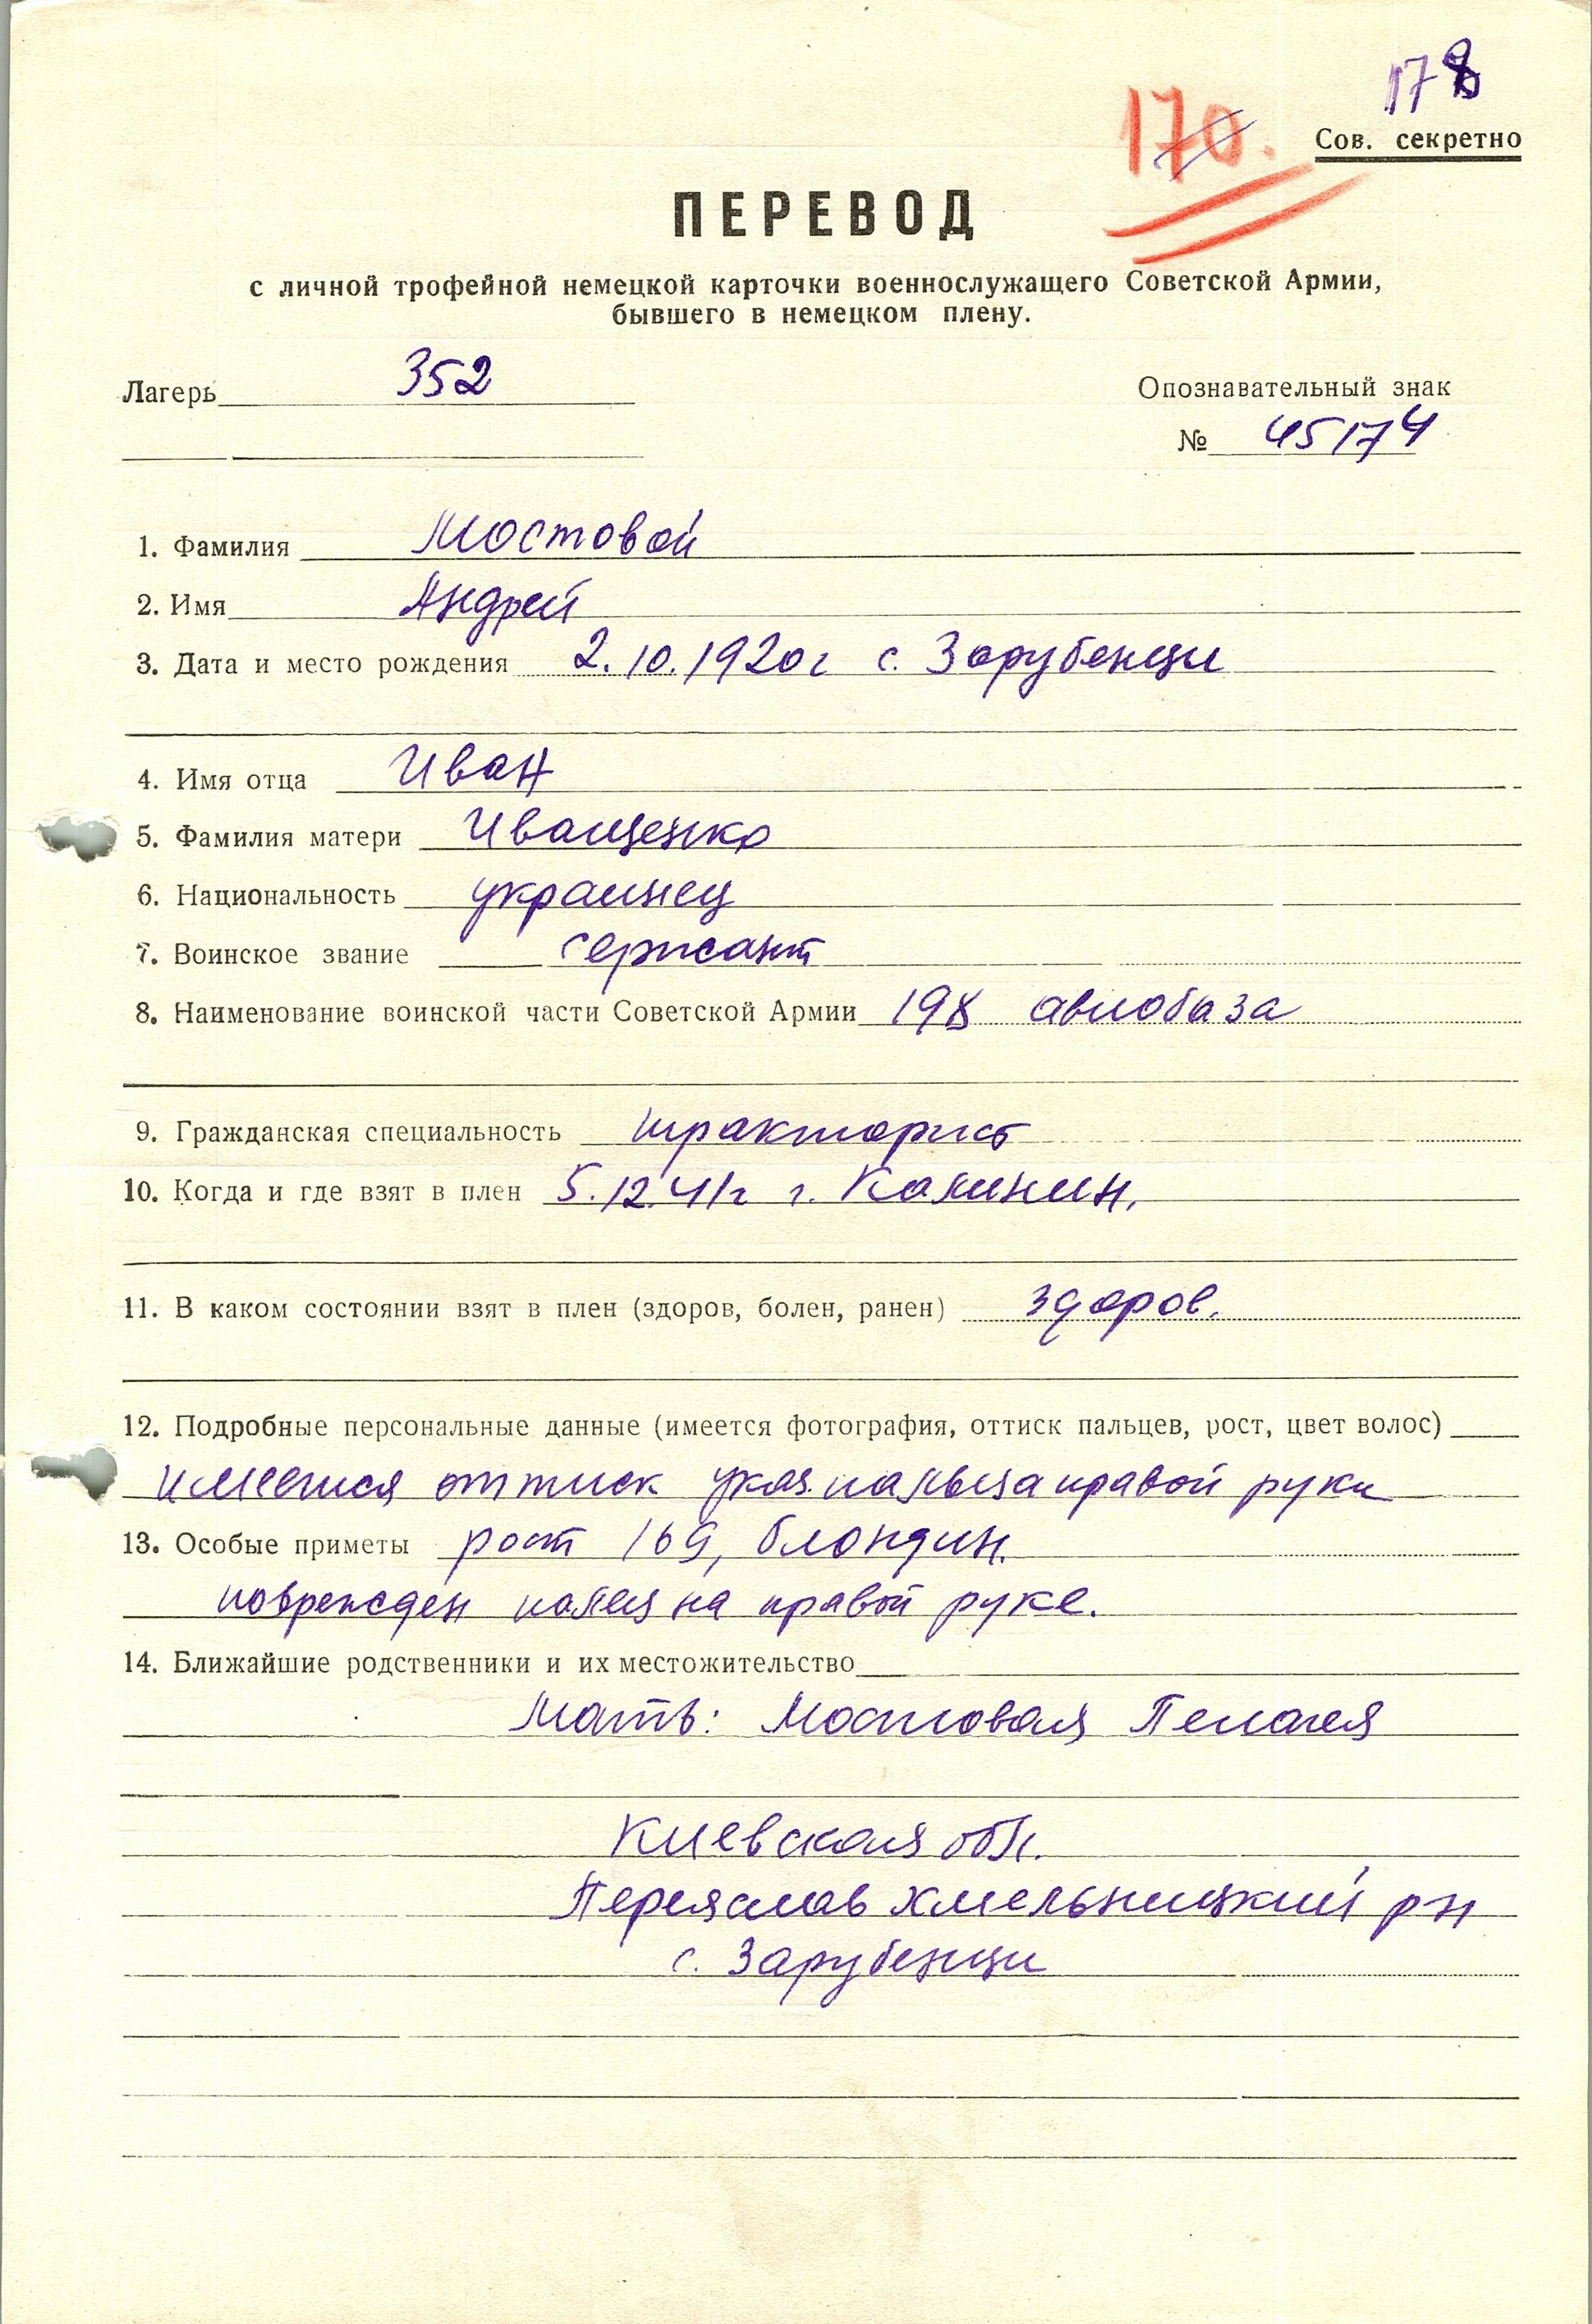 178
170.
Сов. секретно
ПЕРЕВОД
с личной трофейной немецкой карточки военнослужащего Советской Армии,
бывшего в немецком плену.
Лагерь 352
Опознавательный знак
№ 45174
1. Фамилия Мостовой
2. Имя Андрей
3. Дата и место рождения 2.10.1920г с. Зарубенци
4. Имя отца Иван
5. Фамилия матери Иващенко
6. Национальность украинец
7. Воинское звание сержант
8. Наименование воинской части Советской Армии 198 авиобаза
9. Гражданская специальность тракторист
10. Когда и где взят в плен 5.12.41г г. Калинин.
11. В каком состоянии взят в плен (здоров, болен, ранен) здоров.
12. Подробные персональные данные (имеется фотография, оттиск пальцев, рост, цвет волос)
имеется оттиск указ. пальца правой руки
13. Особые приметы рост 169, блондин.
поврежден палец на правой руке.
14. Ближайшие родственники и их местожительство
Мать: Мостовая Пелагея
Киевская обл.
Переяслав Хмельницкий рн
с. Зарубенци